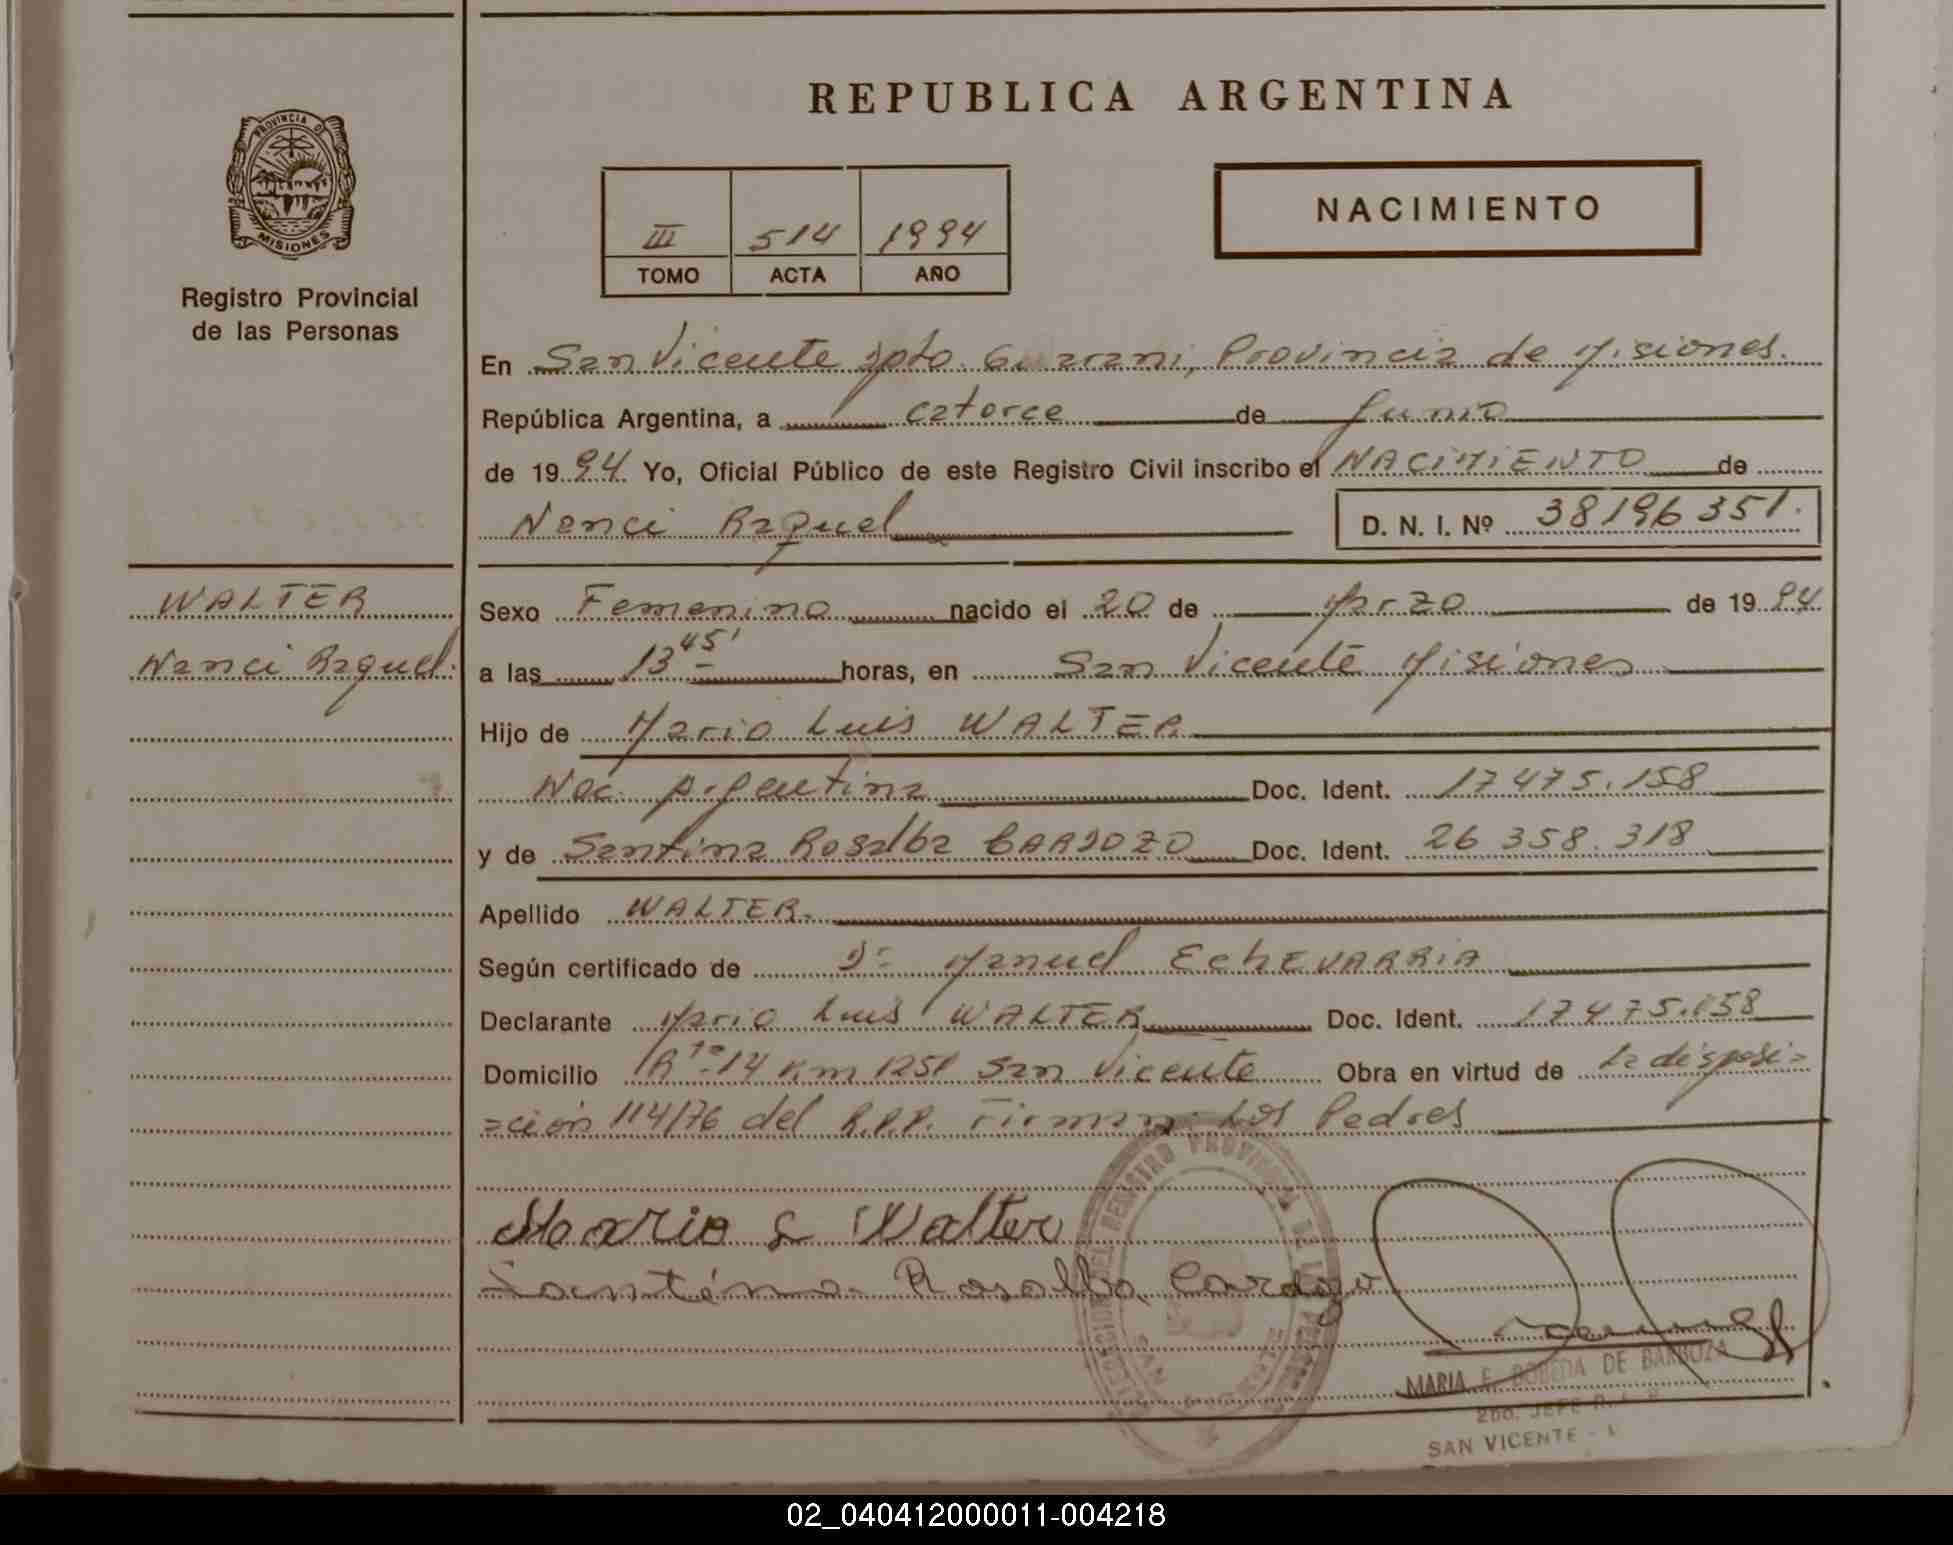 REPUBLICA ARGENTINA
PROVINCIA DE
MISIONES
Registro Provincial
de las Personas
III 514 1994
TOMO ACTA AÑO
NACIMIENTO
En San Vicente Dpto. Guarani, Provincia de Misiones.
República Argentina, a catorce de Junio
de 1994 Yo, Oficial Público de este Registro Civil inscribo el NACIMIENTO de
Nanci Raquel D. N. I. Nº 38196351.
WALTER
Nanci Raquel.
Sexo Femenino nacido el 20 de Marzo de 1994
a las 13 45' horas, en San Vicente Misiones
Hijo de Mario Luis WALTER
Nac. Argentina Doc. Ident. 17475.158
y de Santina Rosalba CARDOZO Doc. Ident. 26 358.318
Apellido WALTER.
Según certificado de Dr Manuel EChEVARRiA
Declarante Mario Luis WALTER Doc. Ident. 17475.158
Domicilio R ta 14 Km 1251 San Vicente Obra en virtud de La disposi=
=ción 114/76 del R.P.P. Firman: Los Padres
Mario L Walter
Santina Rosalba Cardozo
MARIA E. BOBEDA DE BARBOZA
2DO. JEFE R.
SAN VICENTE -
02_040412000011-004218